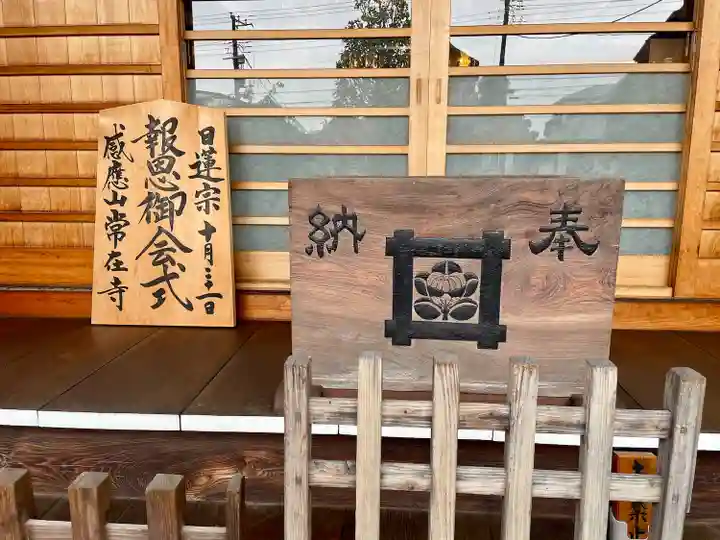 日蓮宗 十月三十一日
報恩御会式
感應山常在寺
奉納